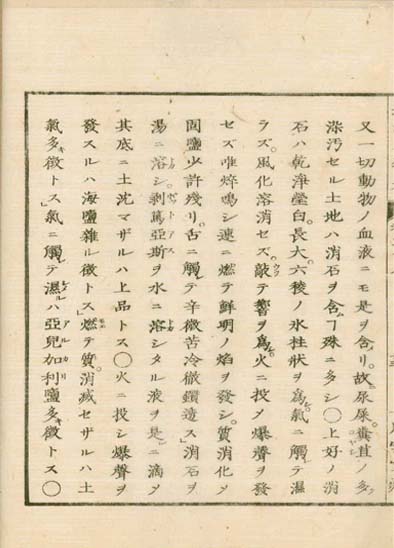 又一切動物ノ血液ニモ是ヲ含リ。故ニ尿屎。糞苴ノ多ク
染汚セル土地ハ消石ヲ含ヿ殊ニ多シ〇上好ノ消
石ハ乾淨瑩白。長大。六稜ノ氷柱狀ヲ爲シ。氣ニ觸テ濕
ラズ。風化溶消セズ。敲テ響ヲ爲シ。火ニ投メ爆聲ヲ發
セズ唯焠鳴シ速ニ燃テ鮮明ノ焰ヲ發シ。質消化メ
固鹽少許殘リ。舌ニ觸レテ辛微苦冷徹鑽透ス」消石ヲ
湯ニ溶シ。剝篤亞斯ヲ水ニ溶シタル液ヲ是ニ滴メ
其底ニ土沈マザルハ上品トス〇火ニ投シ爆聲ヲ
發スルハ海鹽雜ル徵トス」燃テ質。消滅セザルハ土
氣多キ徵トス」氣ニ觸テ濕ルハ亞兒加利鹽多キ徵トス〇